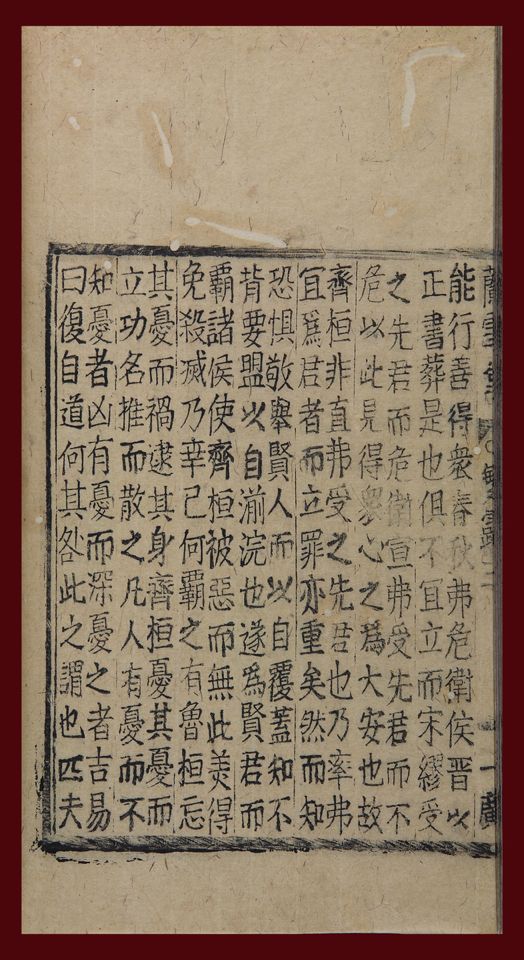 能行善得衆春秋弗危衛侯晉以
正書葬是也俱不冝立而宋繆受
之先君而危衛宣弗受先君而不
危以此見得衆心之爲大安也故
齊桓非直弗受之先君也乃率弗
冝爲君者而立罪亦重矣然而知
恐懼敬舉賢人而以自覆蓋知不
背要盟以自湔浣也遂爲賢君而
霸諸侯使齊桓被惡而無此羙得
免殺滅乃幸已何霸之有魯桓忘
其憂而禍逮其身齊桓憂其憂而
立功名推而散之凡人有憂而不
知憂者凶有憂而深憂之者吉易
曰復自道何其咎此之謂也匹夫